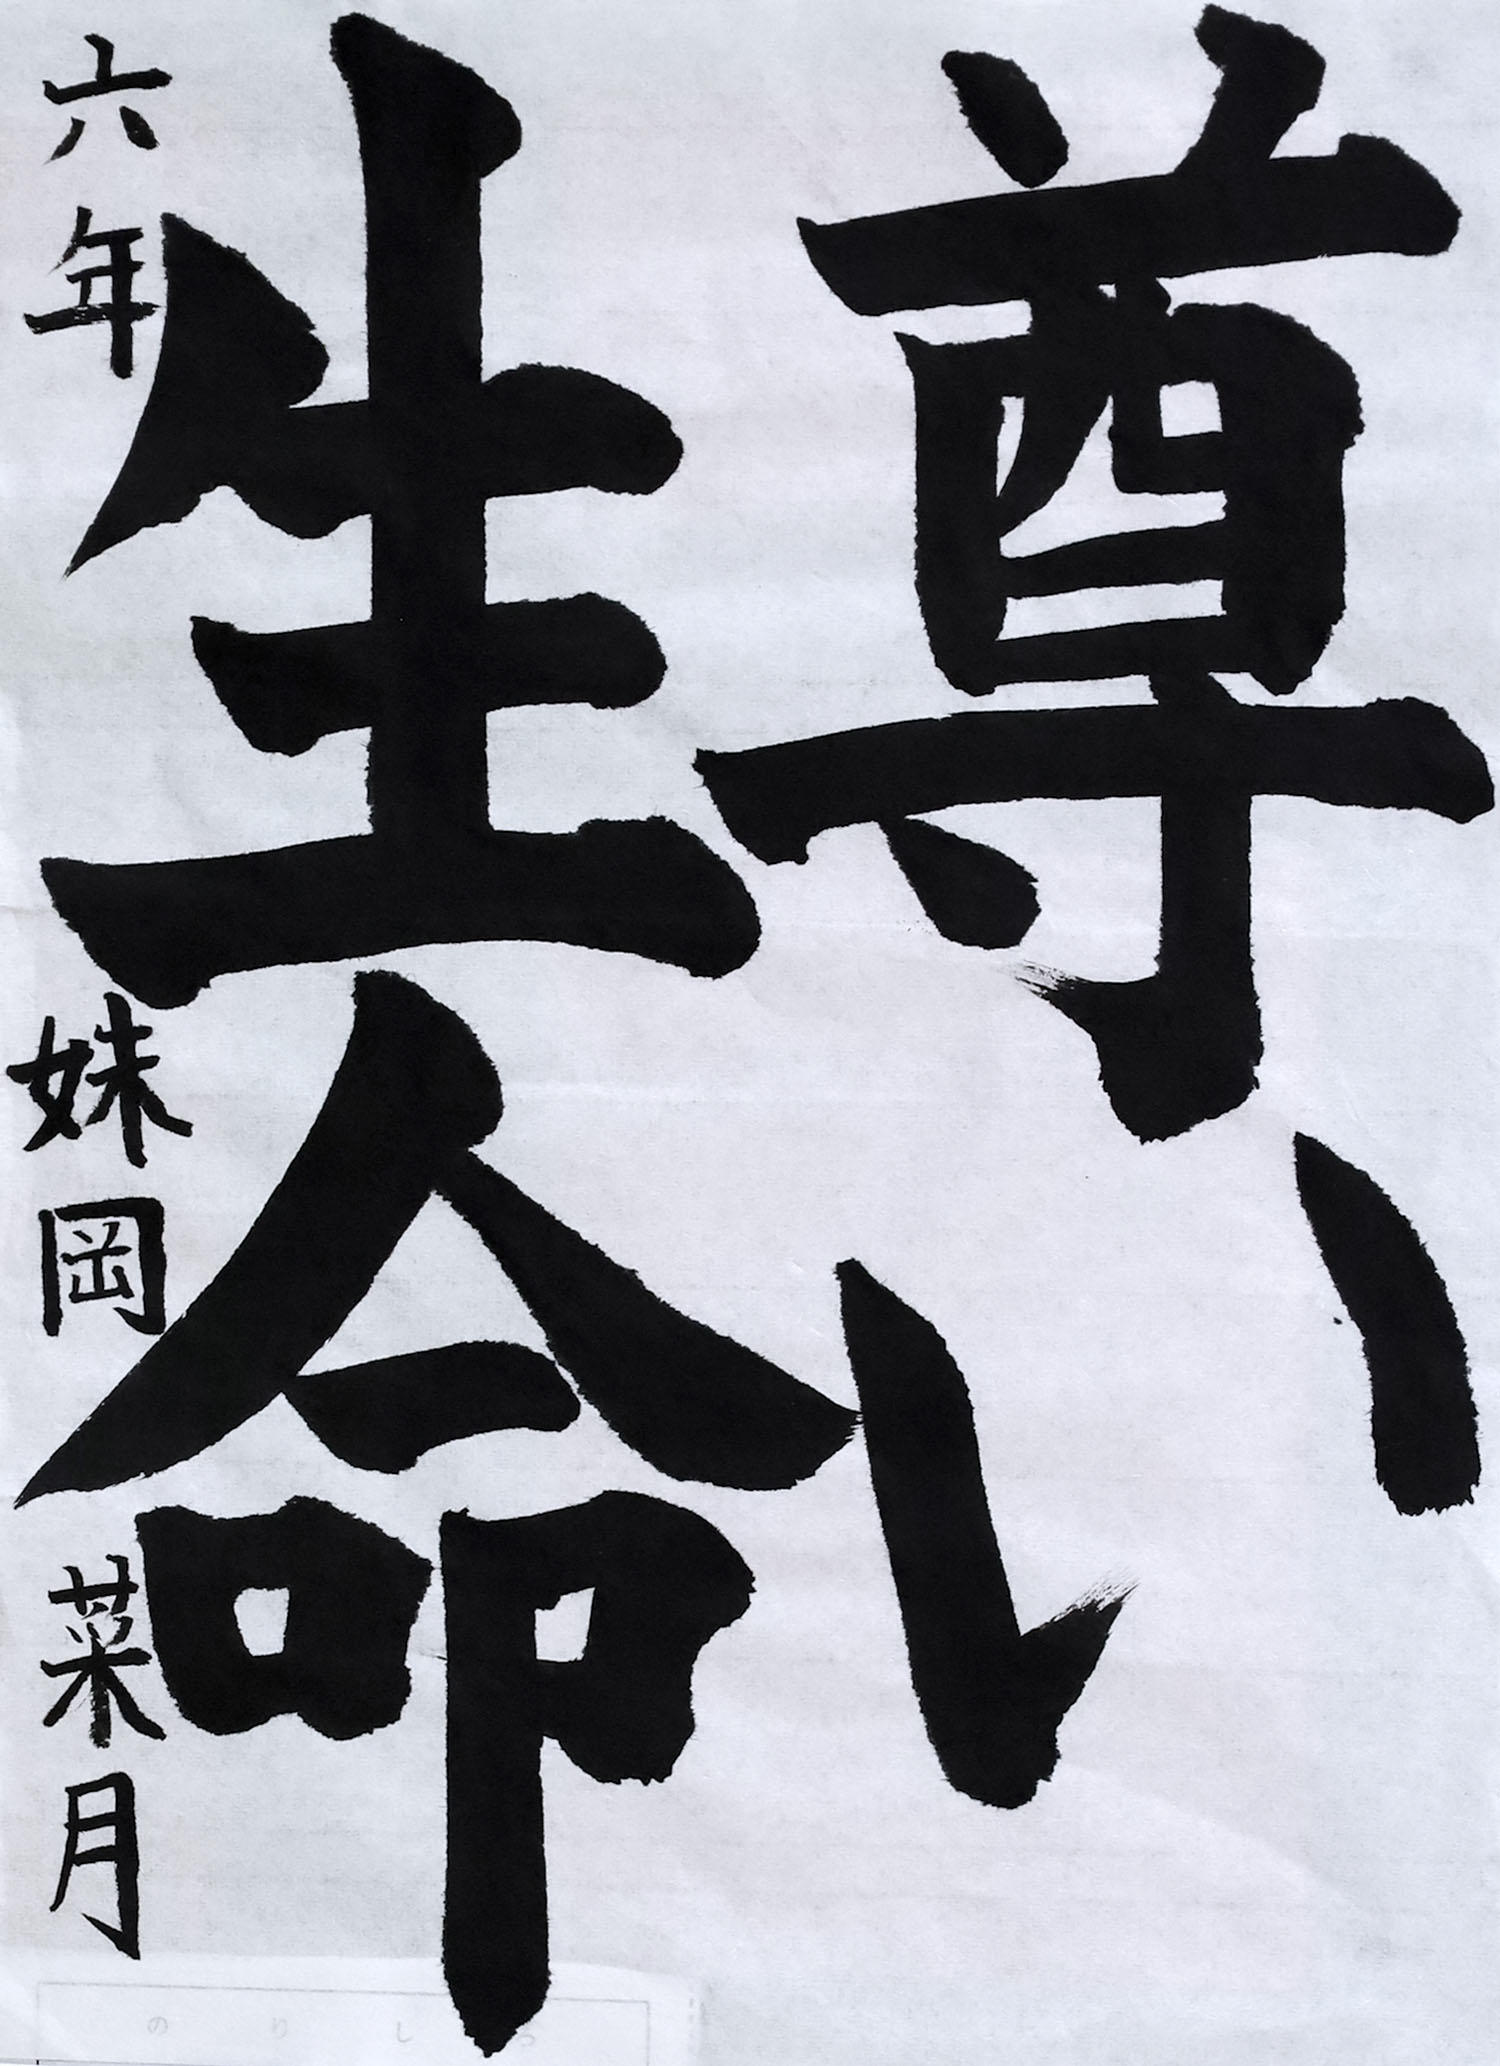 尊い
生命
六年 妹岡 菜月
のりしろ